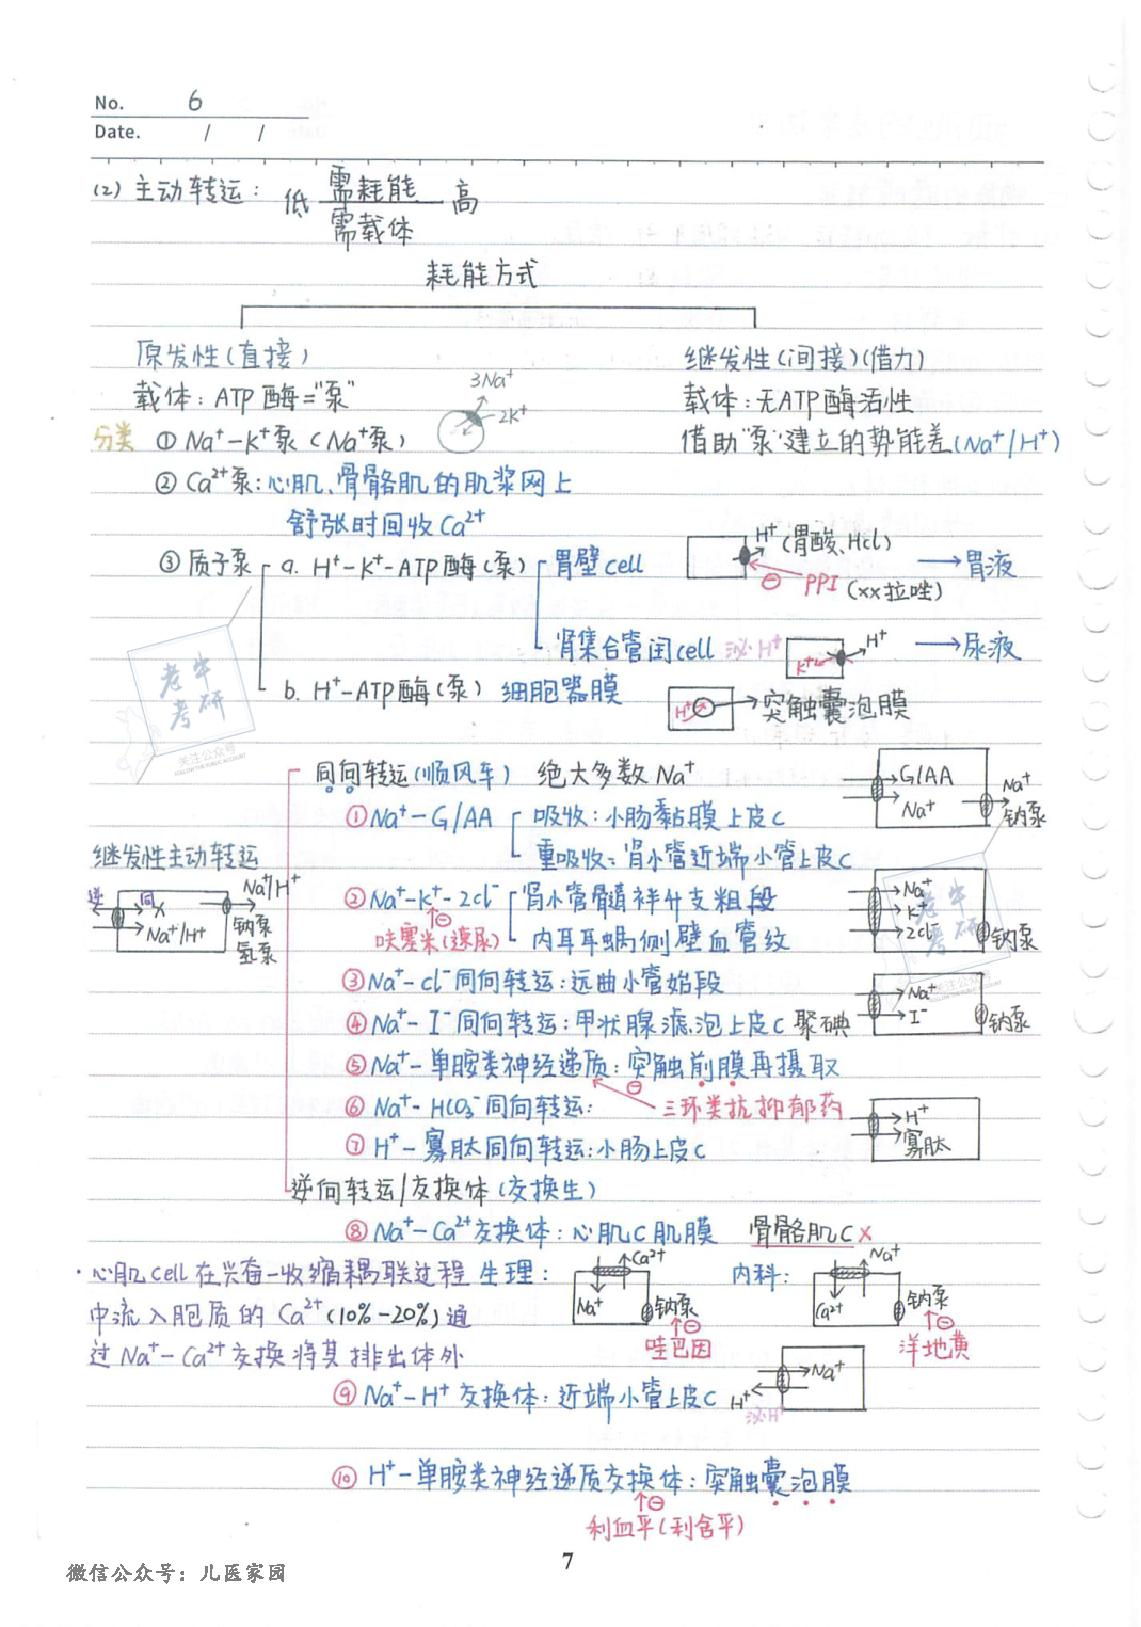 No. 6
Date. / /
(2) 主动转运: 低 需耗能 高
需载体
耗能方式
原发性(直接) 继发性(间接)(借力)
载体: ATP酶="泵" 载体:无ATP酶活性
3Na⁺
2K⁺
分类 ① Na⁺-K⁺泵(Na⁺泵) 借助"泵"建立的势能差(Na⁺/H⁺)
② Ca²⁺泵:心肌、骨骼肌的肌浆网上
舒张时回收Ca²⁺
③ 质子泵 a. H⁺-K⁺-ATP酶(泵) 胃壁cell H⁺(胃酸、Hcl) →胃液
⊖ PPI (xx拉唑)
肾集合管闰cell 泌H⁺ K⁺ H⁺ →尿液
b. H⁺-ATP酶(泵) 细胞器膜 H⁺ 突触囊泡膜
老牛考研
关注公众号
同向转运(顺风车) 绝大多数Na⁺ G/AA
Na⁺ Na⁺ 钠泵
①Na⁺-G/AA 吸收:小肠黏膜上皮c
重吸收:肾小管近端小管上皮c
继发性主动转运
逆 同 X Na⁺/H⁺ Na⁺/H⁺ 钠泵 氢泵
②Na⁺-K⁺-2cl⁻ 肾小管髓袢升支粗段 Na⁺ K⁺ 2cl⁻ 钠泵
⊖ 呋塞米(速尿) 内耳耳蜗侧壁血管纹
老牛考研
关注公众号
③Na⁺-cl⁻同向转运:远曲小管始段
④Na⁺-I⁻同向转运:甲状腺滤泡上皮c 聚碘 Na⁺ I⁻ 钠泵
⑤Na⁺-单胺类神经递质:突触前膜再摄取
⊖ 三环类抗抑郁药
⑥Na⁺-HCO₃⁻同向转运:
⑦H⁺-寡肽同向转运:小肠上皮c H⁺ 寡肽
逆向转运/交换体(交换生)
⑧Na⁺-Ca²⁺交换体:心肌c肌膜 骨骼肌c X
·心肌cell在兴奋-收缩耦联过程 生理: Ca²⁺ Na⁺ 钠泵 ⊖ 哇巴因 内科: Na⁺ Ca²⁺ 钠泵 ⊖ 洋地黄
中流入胞质的Ca²⁺(10%-20%)通
过Na⁺-Ca²⁺交换将其排出体外
⑨Na⁺-H⁺交换体:近端小管上皮c H⁺ 泌H⁺ Na⁺
⑩ H⁺-单胺类神经递质交换体:突触囊泡膜
⊖
利血平(利舍平)
7
微信公众号:儿医家园